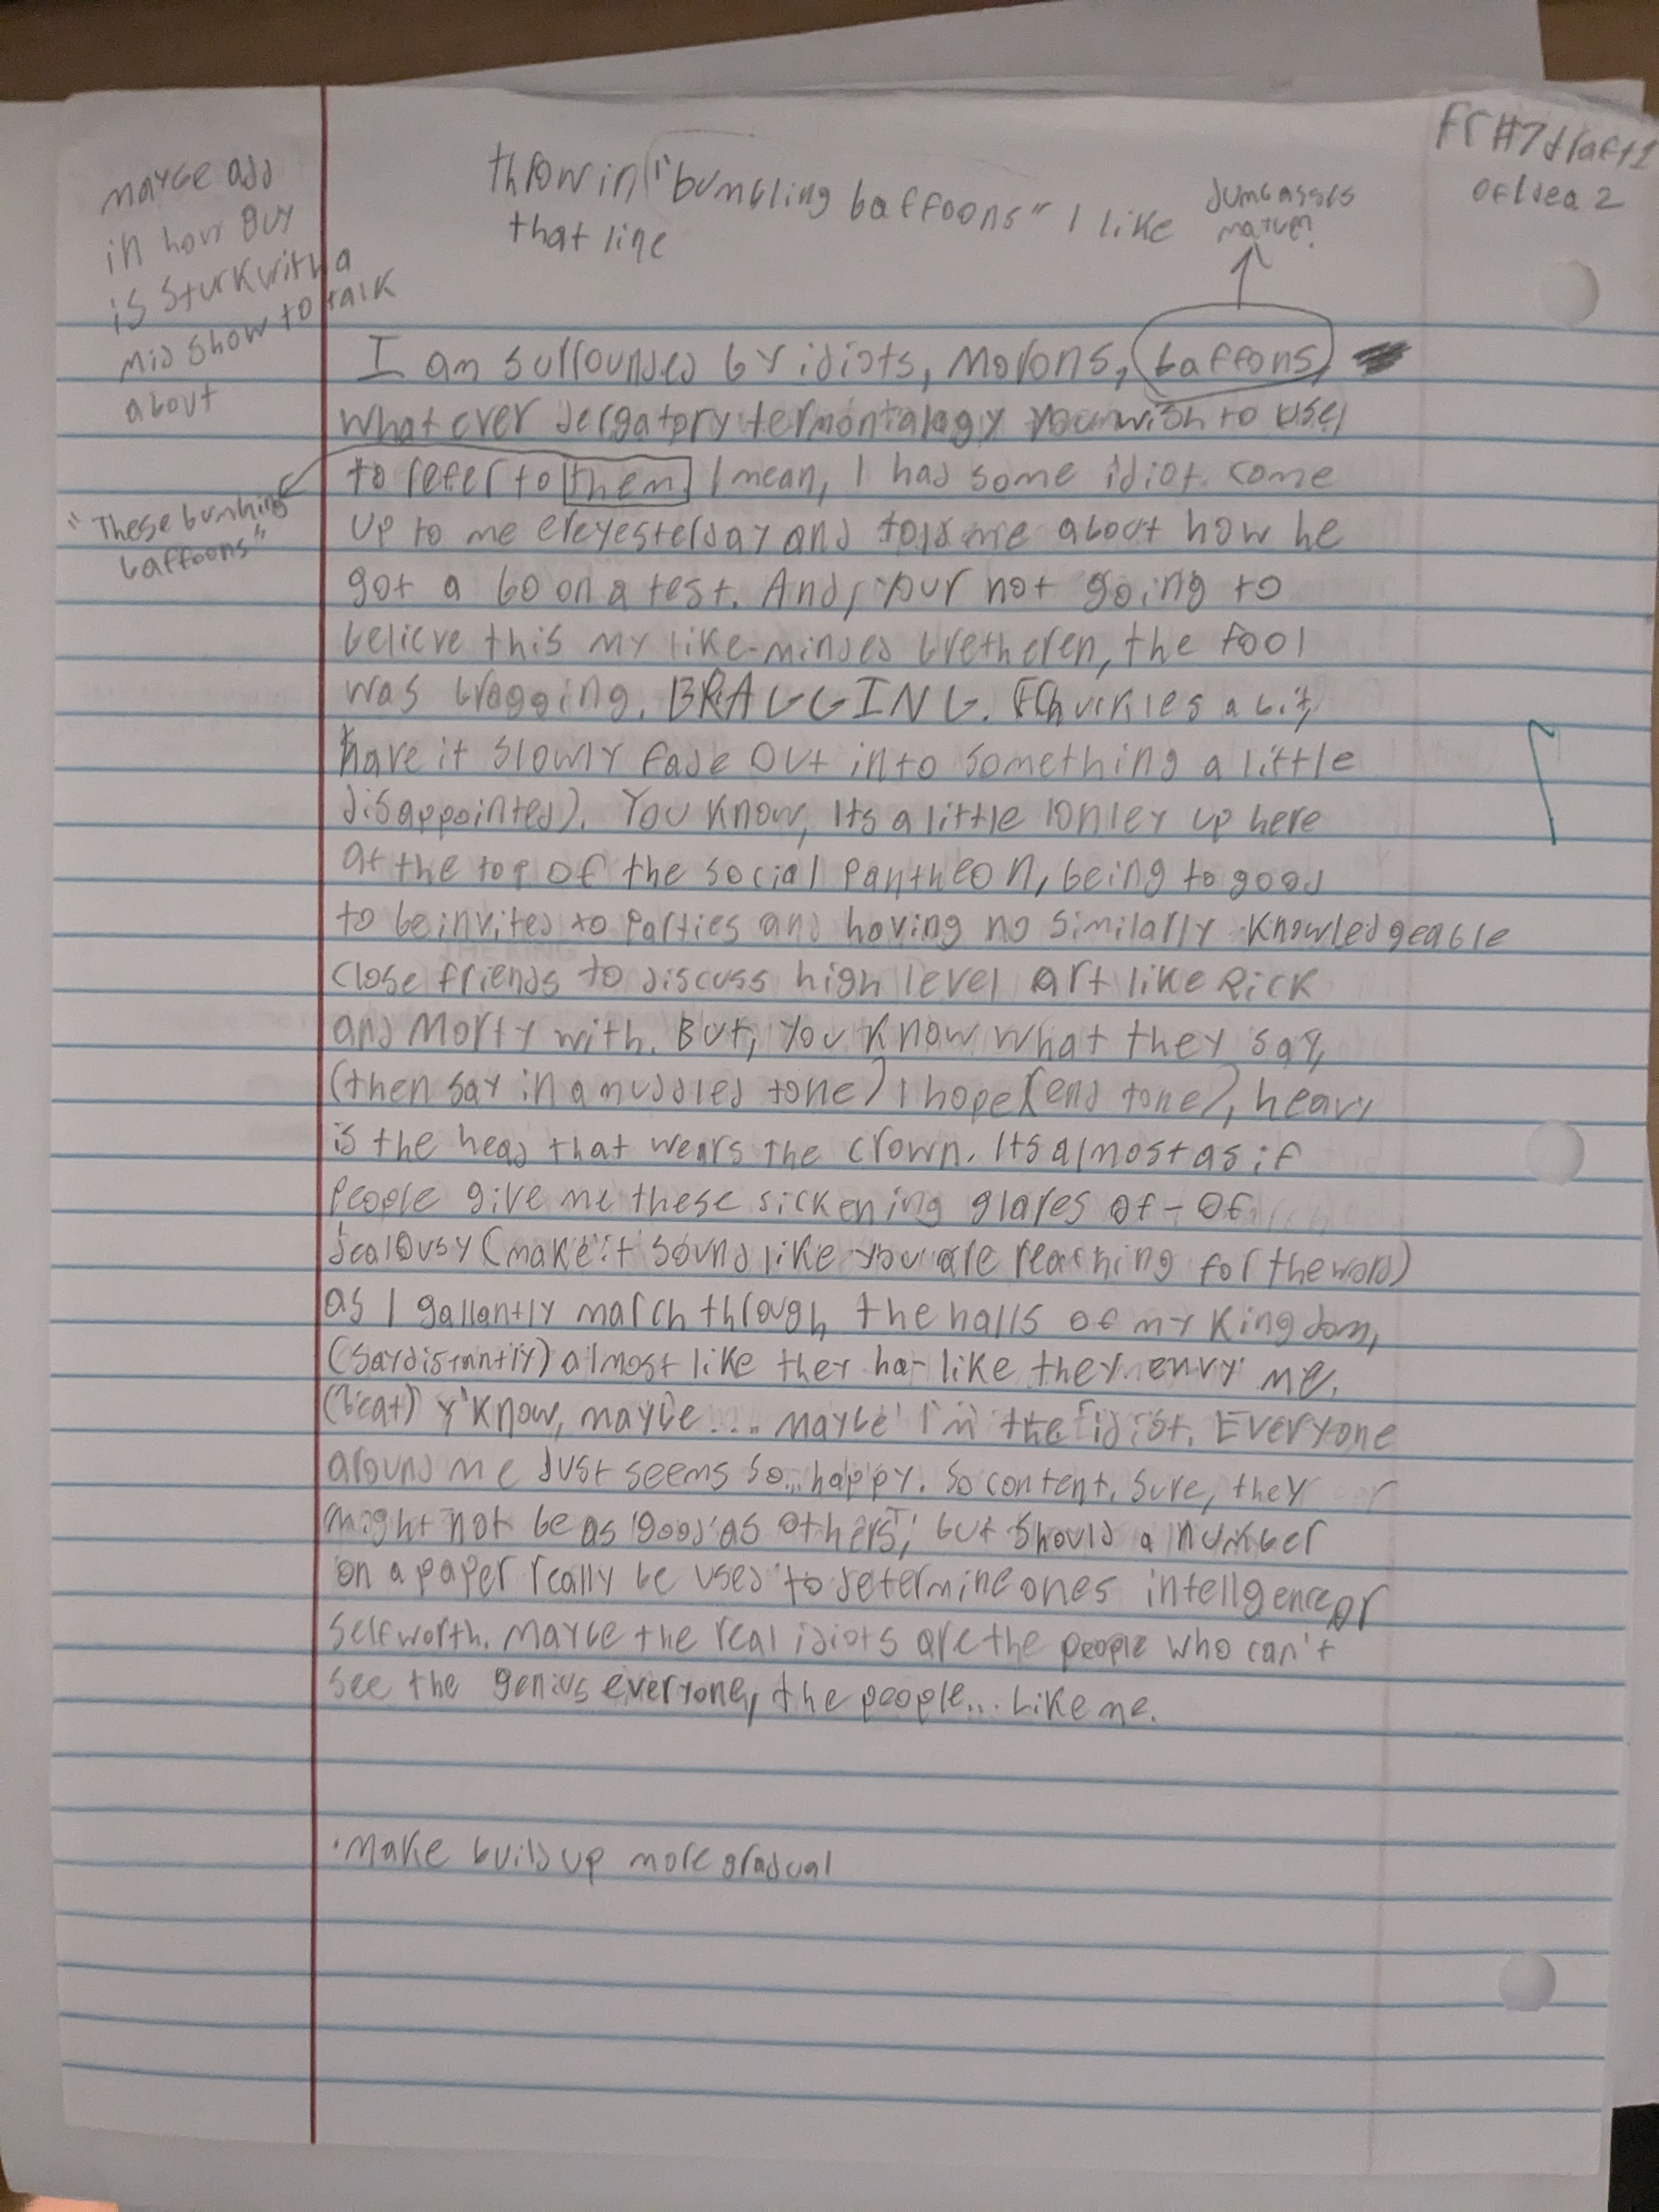 FR#7 draft 1
of Idea 2
maybe add
in how guy
is sturk with a
mid show to talk
about
throw in "bumbling baffoons" I like
that line
dumbasses
mature?
I am surrounded by idiots, morons, baffons,
whatever dergatory termontalagy you wish to use,
to refer to them. I mean, I had some idiot come
"These bumbling
baffoons"
up to me ereyesterday and told me about how he
got a 60 on a test. And, your not going to
believe this my like-minded bretheren, the fool
was bragging. BRAGGING. (Chuckles a bit,
have it slowly fade out into something a little
disappointed). You know, Its a little lonley up here
at the top of the social pantheon, being to good
to be invited to parties and having no similarly knowledgeable
close friends to discuss high level art like Rick
and Morty with. But, you know what they say,
(then say in a muddled tone) I hope (end tone), heavy
is the head that wears the crown. Its almost as if
people give me these sickening glares of - of
jealousy (make it sound like you are reaching for the word)
as I gallantly march through the halls of my kingdom,
(say distantly) almost like they ha- like they envy me.
(beat) y'know, maybe... maybe I'm the idiot. Everyone
around me just seems so... happy. So content. Sure, they
might not be as 'good' as others', but should a number
on a paper really be used to determine ones intellgence or
selfworth. Maybe the real idiots are the people who can't
see the genius everyone, the people... Like me.
·make build up more gradual